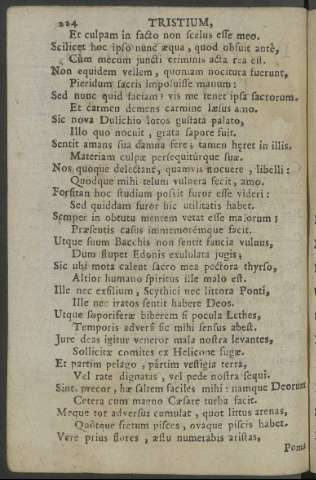 224 TRISTIUM,
Et culpam in facto non scelus esse meo.
Scilicet hoc ipso nunc æqua, quod obfuit antè,
Cùm mecum juncti criminis acta rea est.
Non equidem vellem, quoniam nocitura fuerunt,
Pieridum sacris imposuisse manum:
Sed nunc quid faciam? vis me tenet ipsa sacrorum.
Et carmen demens carmine læsus amo.
Sic nova Dulichio lotos gustata palato,
Illo quo nocuit, grata sapore fuit.
Sentit amans sua damna fere; tamen hęret in illis.
Materiam culpæ persequitúrque suæ.
Nos quoque delectant, quamvis nocuere, libelli:
Quodque mihi telum vulnera fecit, amo.
Forsitan hoc studium possit furor esse videri:
Sed quiddam furor hic utilitatis habet.
Semper in obtutu mentem vetat esse malorum;
Præsentis casûs immemorémque facit.
Utque suum Bacchis non sentit saucia vulnus,
Dum stupet Edonis exululata jugis;
Sic ubi mota calent sacro mea pectora thyrso,
Altior humano spiritus ille malo est.
Ille nec exsilium, Scythici nec littora Ponti,
Ille nec iratos sentit habere Deos.
Utque soporiferæ biberem si pocula Lethes,
Temporis adversi sic mihi sensus abest.
Jure deas igitur veneror mala nostra levantes,
Sollicitæ comites ex Helicone fugæ.
Et partim pelago, pártim vestigia terrâ,
Vel rate dignatas, vel pede nostra sequi.
Sint, precor, hæ saltem faciles mihi: namque Deorum
Cetera cum magno Cæsare turba facit.
Meque tot adversus cumulat, quot littus arenas,
Quótque fretum pisces, ovaque piscis habet.
Vere prius flores, æstu numerabis aristas,
Poma